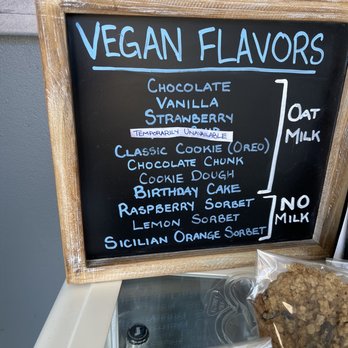 VEGAN FLAVORS
CHOCOLATE
VANILLA
STRAWBERRY
TEMPORARILY UNAVAILABLE
CLASSIC COOKIE (OREO)
CHOCOLATE CHUNK
COOKIE DOUGH
BIRTHDAY CAKE
OAT
MILK
RASPBERRY SORBET
LEMON SORBET
SICILIAN ORANGE SORBET
NO
MILK